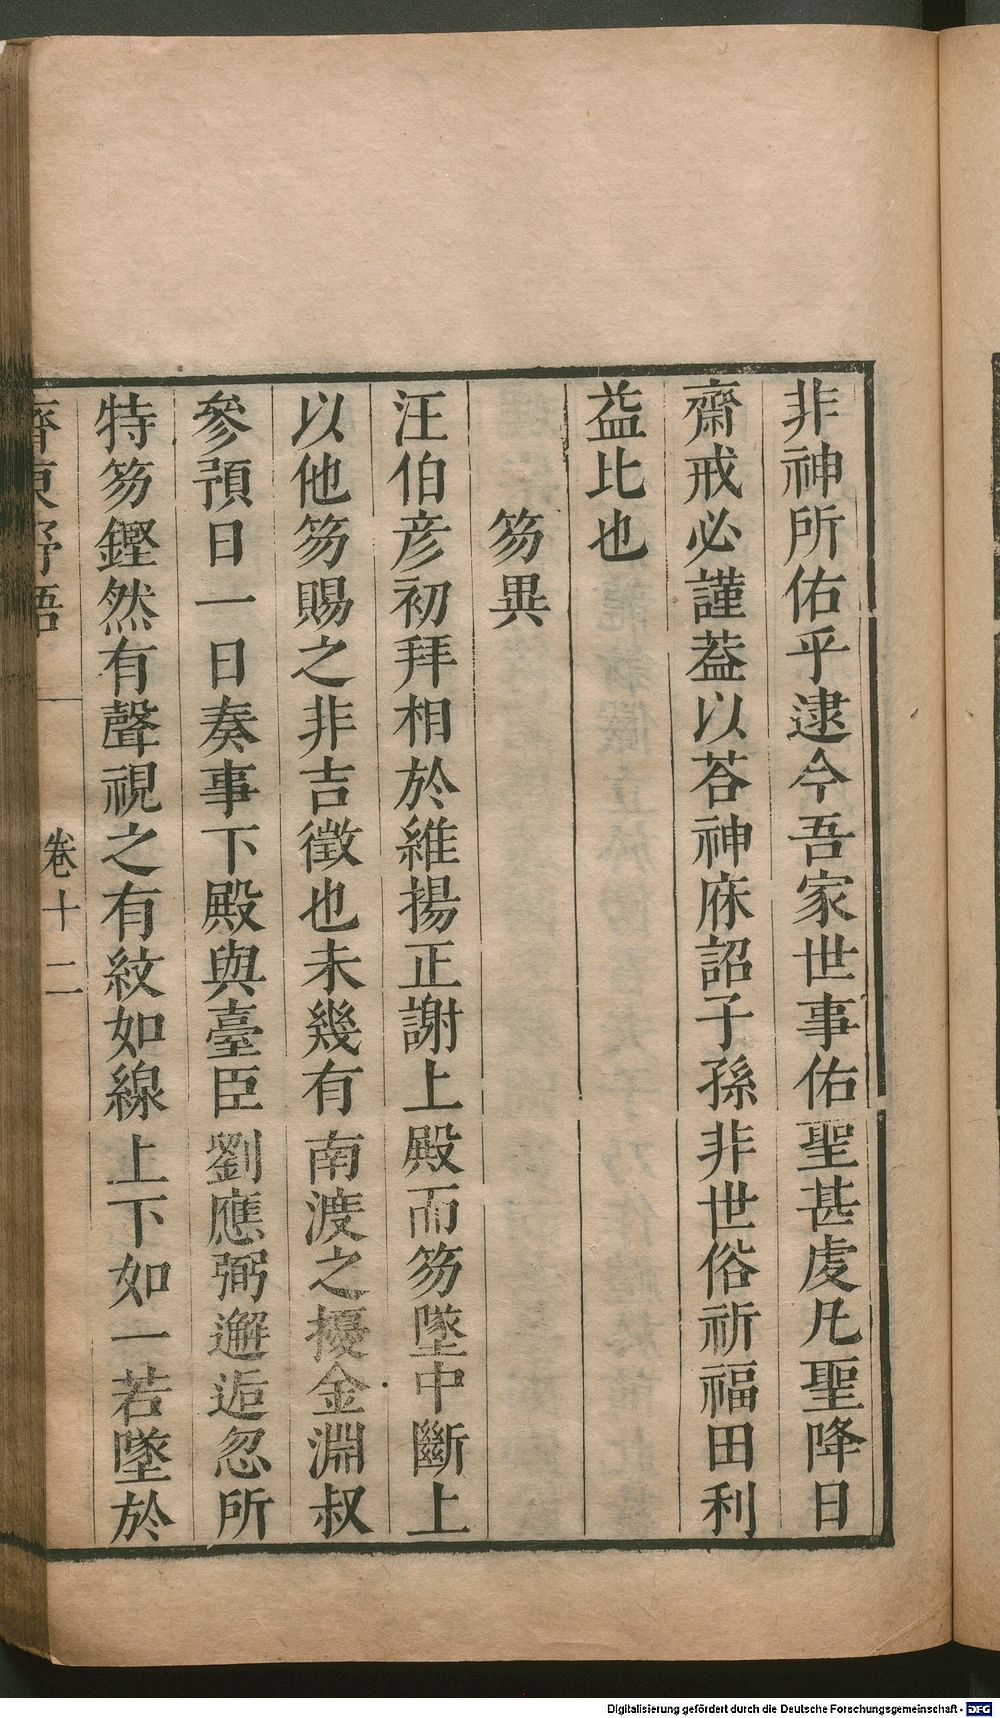 非神所佑乎逮今吾家世事佑聖甚虔凡聖降日
齋戒必謹葢以荅神庥詔子孫非世俗祈福田利
益比也
笏異
汪伯彦初拜相於維揚正謝上殿而笏墜中斷上
以他笏賜之非吉徵也未幾有南渡之擾金淵叔
參預日一日奏事下殿與臺臣劉應弼邂逅忽所
特笏鏗然有聲視之有紋如線上下如一若墜於
齊東野語 卷十二
Digitalisierung gefördert durch die Deutsche Forschungsgemeinschaft - DFG